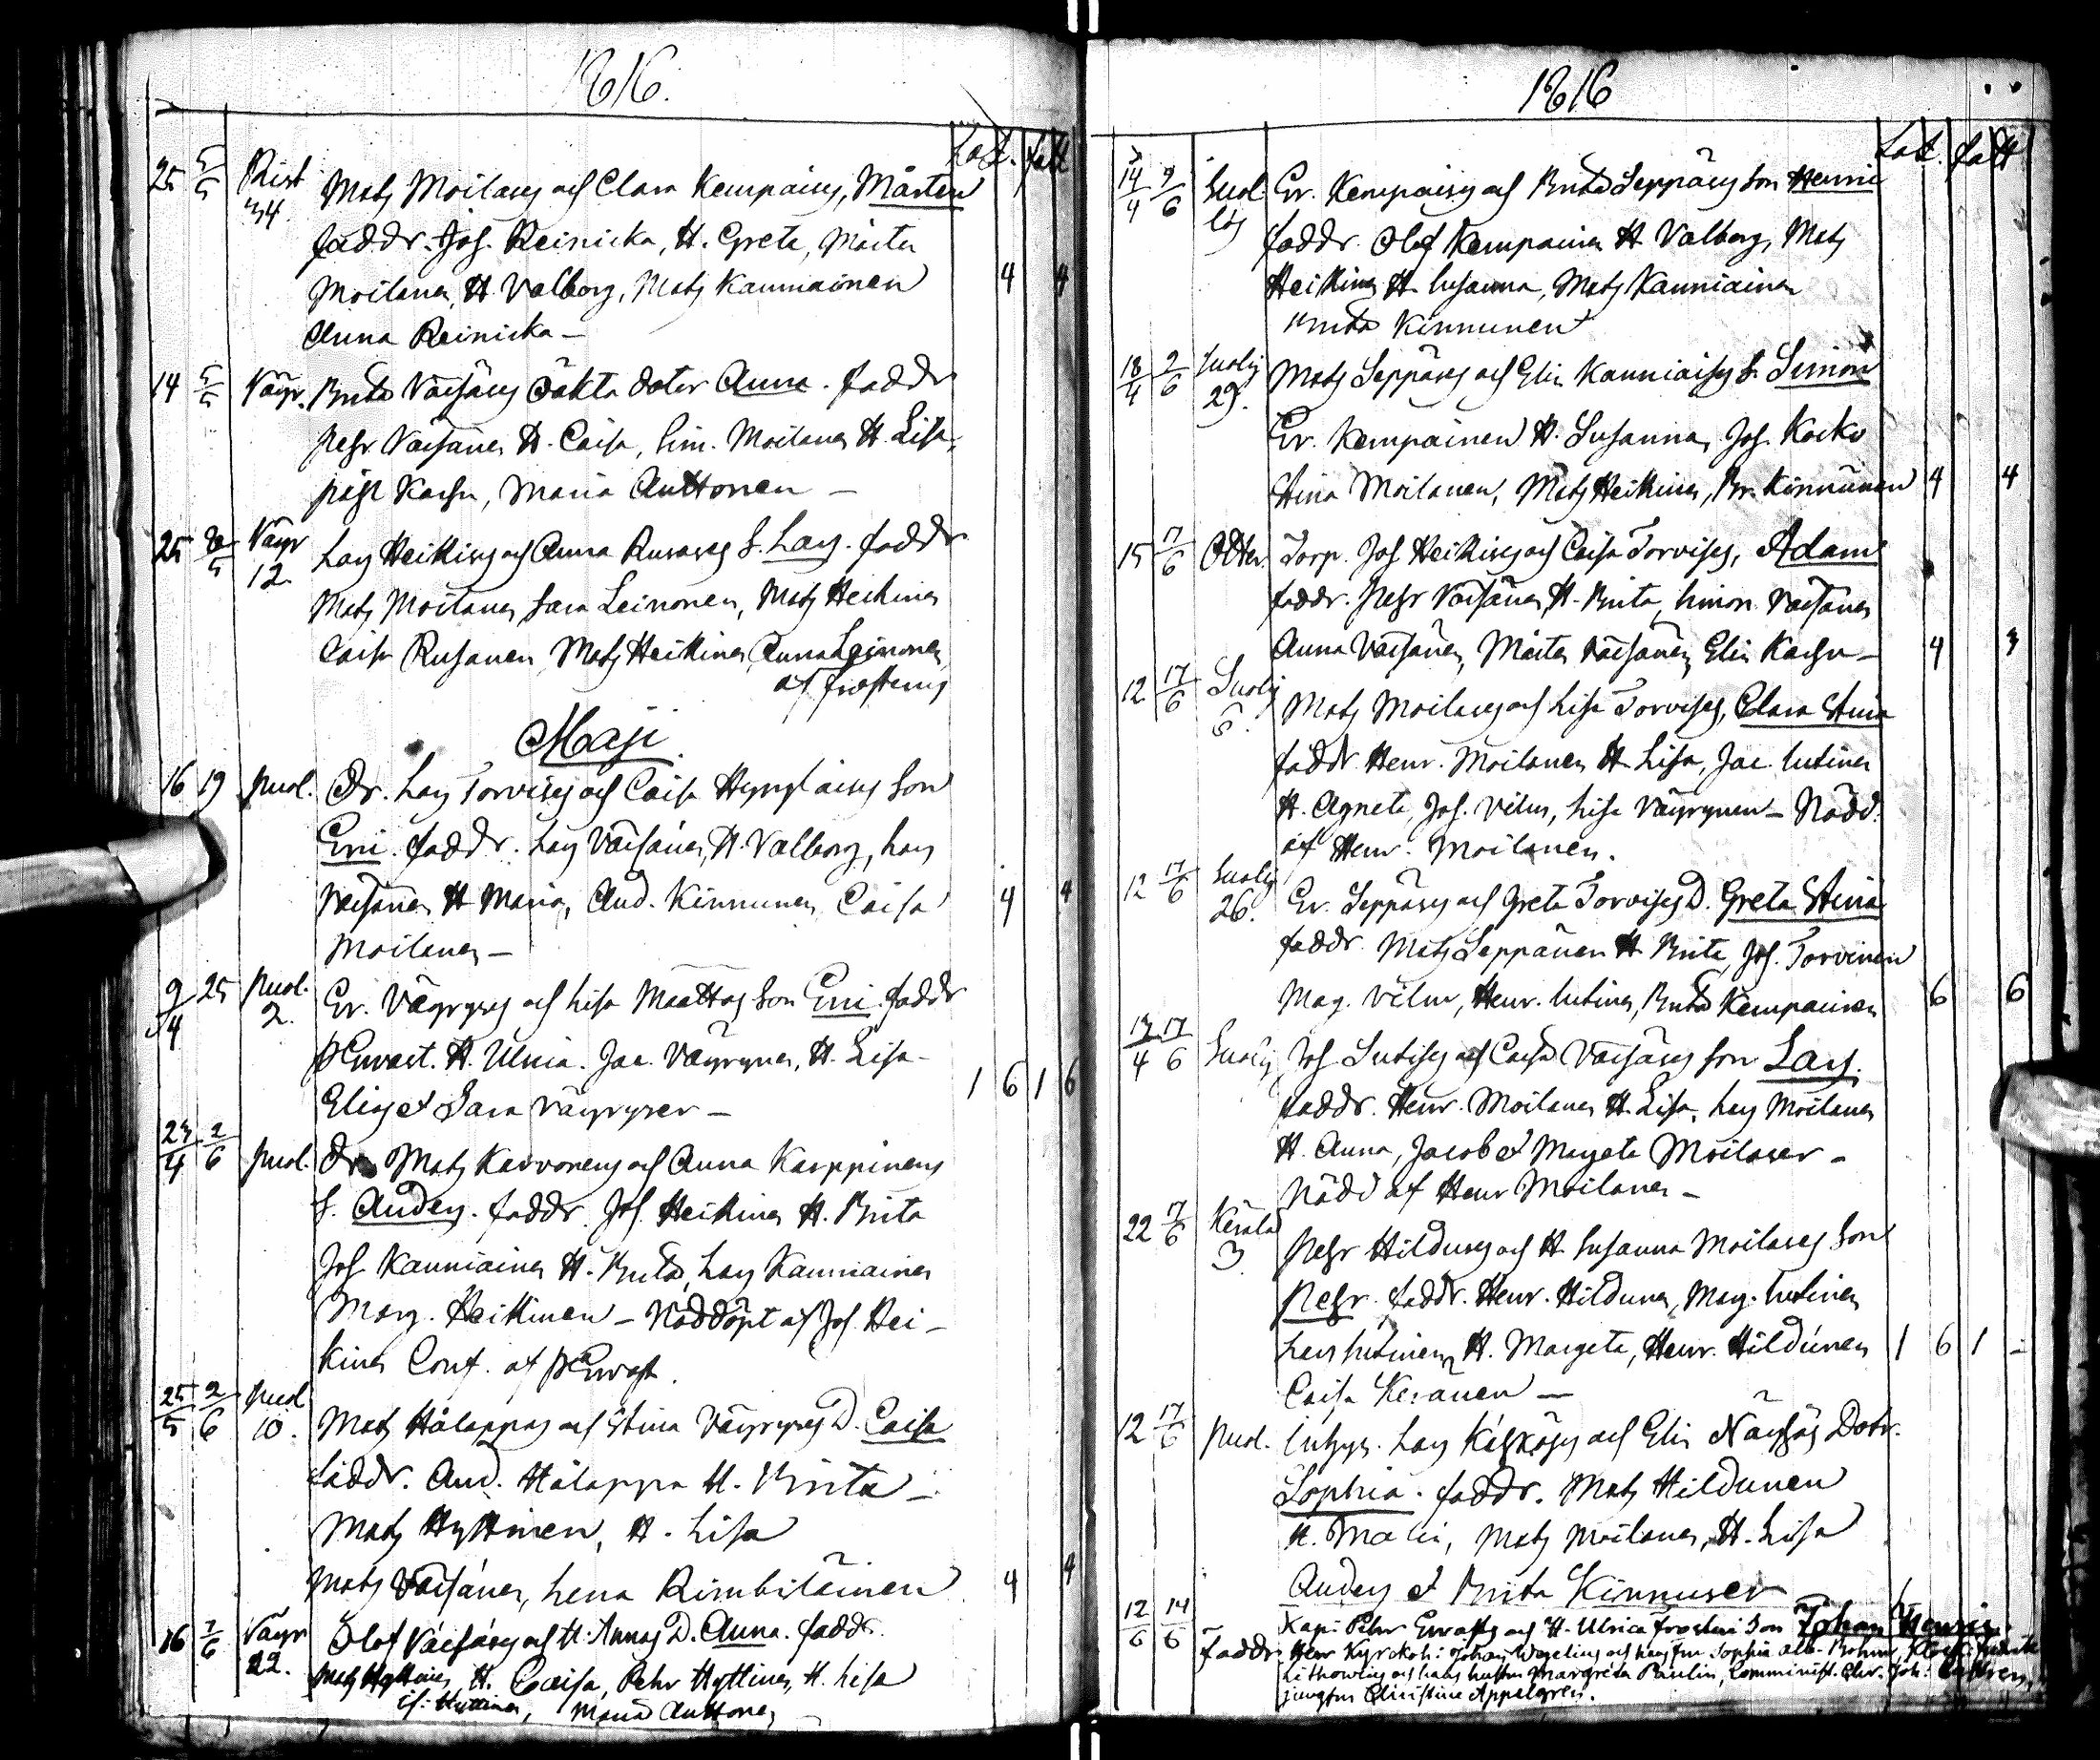 1816.
Kat. fatt
25 5/5 Rist 34 Mats Moilases och Clara Kempaises, Mårten
faddr. Joh. Reinicka, H. Greta, Mårten
Moilanen, H. Valborg, Mats Kauniainen 4 4
Anna Reinicka –
14 5/5 Väyr. Brita Väisäses oäkta doter Anna. faddr
Pehr Väisänen H. Caisa, Sim. Moilanen H. Lisa,
Kachu, Maria Anttonen –
25 Väyr 12 Lars Heikises och Anna Rusases S. Lars. faddr
Mats Moilanen, Sara Leinonen, Mats Heikinen
Caisa Rusanen, Mats Heikinen, Anna Leinonen
af Frosterus
Maji
16 19 Puol. Dr. Lars Torvises och Caisa Son
Eric. faddr. Lars Väisänen, H. Valborg, Lars
Väisänen H. Maria, And. Kinnunen, Caisa 4 4
Moilanen –
9/4 25 Puol. 2. Er. Väyryses och Lisa Määttas Son Eric faddr
P Ervast. H. Ulrica. Jac. Väyrynen, H. Lisa –
Elias et Sara Väyryser – 1 6 1 6
23/4 2/6 Puol. Dr Mats Karvonens och Anna Karppinens
S. Anders. faddr. Joh. Heikinen H. Brita
Joh Kauniainen H. Brita, Lars Kauniainen
Marg. Heikkinen – Nöddöpt af Joh. Hei–
kinen Conf. af P Ervast.
25/5 2/6 Puol 10. Mats Hålappas och Stina Väyryses D. Caisa
faddr. And. Hålappa H. Brita –
Mats Hyttinen, H. Lisa
Mats Väisänen, Lena Rimbiläinen 4 4
16 2/6 Väyr 22. Olof Väisäses och H. Annas D. Anna. faddr.
Mats Hyttinen, H. Caisa, Pehr Hyttinen, H. Lisa
Hyttinen, Maria Anttonen
1816
Kat. fatt
14/4 9/6 Suol Er. Kempaises och Brita Seppäses Son Henric
faddr. Olof Kempainen H. Valborg, Mats
Heikinen H. Susanna, Mats Kauniainen
Brita Kinnunen
18/4 2/6 Suolij 29. Mats Seppäses och Elin Kauniaises S. Simon
Er. Kempainen H. Susanna, Joh. Kocko
Stina Moilanen, Mats Heikinen, Br. Kinnunen 4 4
15 17/6 Otter. Torp. Joh Heikises och Caisa Torvises, Adam
faddr. Pehr Väisänen H. Brita, Simon Väisänen
Anna Väisänen, Mårten Väisänen, Elin Kachu – 4 3
12 17/6 Suolij 6. Mats Moilases och Lisa Torvises, Clara Stina
faddr Henr. Moilanen H. Lisa, Jac. Lutinen
H. Agneta, Joh. Vilm, Lisa Väyrynen – Nödd.
af Henr. Moilanen.
12 17/6 Suolij 26. Er. Seppäses och Greta Torvises D. Greta Stina
faddr. Mats Seppänen H. Brita, Joh. Torvinen
Mag. Vilm, Henr. Lutinen, Brita Kempainen 6 6
13/4 17/6 Suolij Joh Lutises och Caisa Väisäses Son Lars.
faddr. Henr. Moilanen H. Lisa, Lars Moilanen
H. Anna, Jacob et Margeta Moilaser –
Nödd af Henr Moilanen –
22 17/6 Kerälä 3 Pehr Hilduses och H. Susanna Moilases Son
Pehr. faddr. Henr. Hildunen, Marg. Lutinen
Lars Lutinen, H. Margeta, Henr. Hildunen 1 6 1 –
Caisa Keränen –
12 17/6 Puol. Lars och Elin Dotr.
Sophia. faddr. Mats Hildunen
H. Malin, Mats Moilanen, H. Lisa
Anders et Brita Kinnuser
12/6 14/6 Kapi: Pehr Ervasts och H. Ulrica Frosteri Son Johan Henric.
faddr: Herr Kyrckoh: Johan Wegelius och hans Fru Sophia Bohm,
Lithovius och hans hustru Margreta Paulin, Comminist. Joh:
jungfru Christina Appelgren.